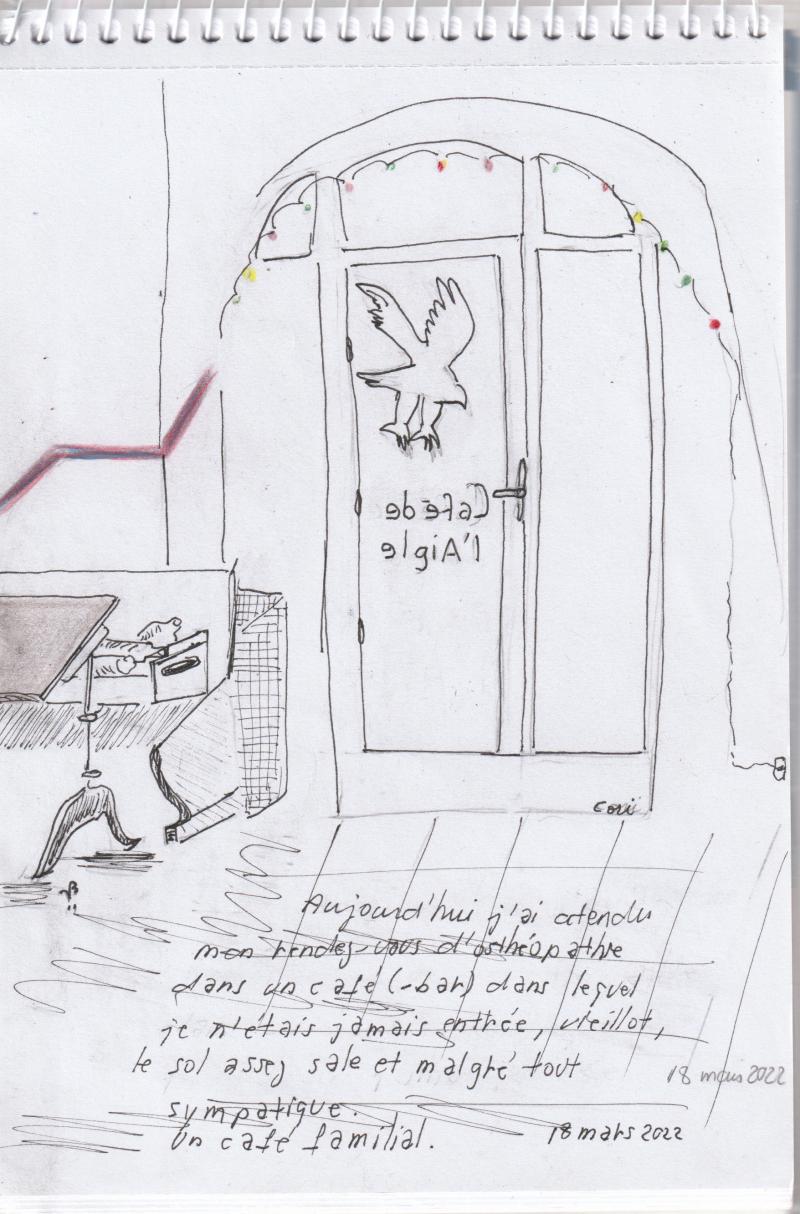 Café de
l'Aigle
Cori
Aujourd'hui j'ai atendu
mon rendez-vous d'osthéopathe
dans un café (-bar) dans lequel
je n'étais jamais entrée, vieillot,
le sol assez sale et malgré tout
sympatique.
Un café familial.
18 mars 2022
18 mars 2022